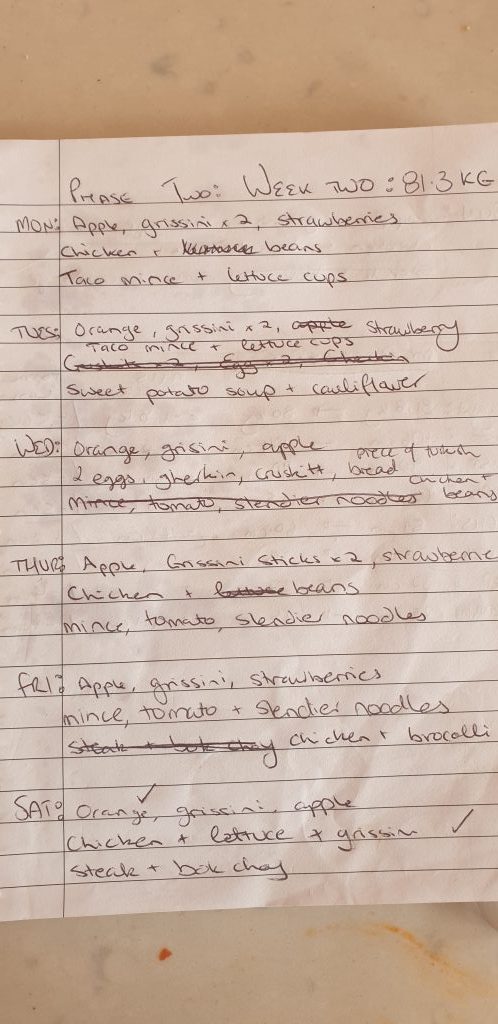 PHASE TWO: WEEK TWO: 81.3 KG
MON: Apple, grissini x 2, strawberries
Chicken + beans
Taco mince + lettuce cups
TUES: Orange, grissini x 2, apple strawberry
Taco mince + lettuce cups
x 2, Egg x 2, Gherkin
Sweet potato soup + cauliflaver
WED: Orange, grisini, apple piece of turkish
2 eggs, gherkin, cruskitt, bread chicken +
Mince, tomato, slendier noodles beans
THUR: Apple, Grissini Sticks x 2, strawberrie
Chicken + lettuce beans
mince, tomato, slendier noodles
FRI: Apple, grissini, strawberries
mince, tomato + slendier noodles
Steak + bok choy chicken + brocolli
SAT: Orange, grissini, apple
Chicken + lettuce + grissin
Steak + bok choy